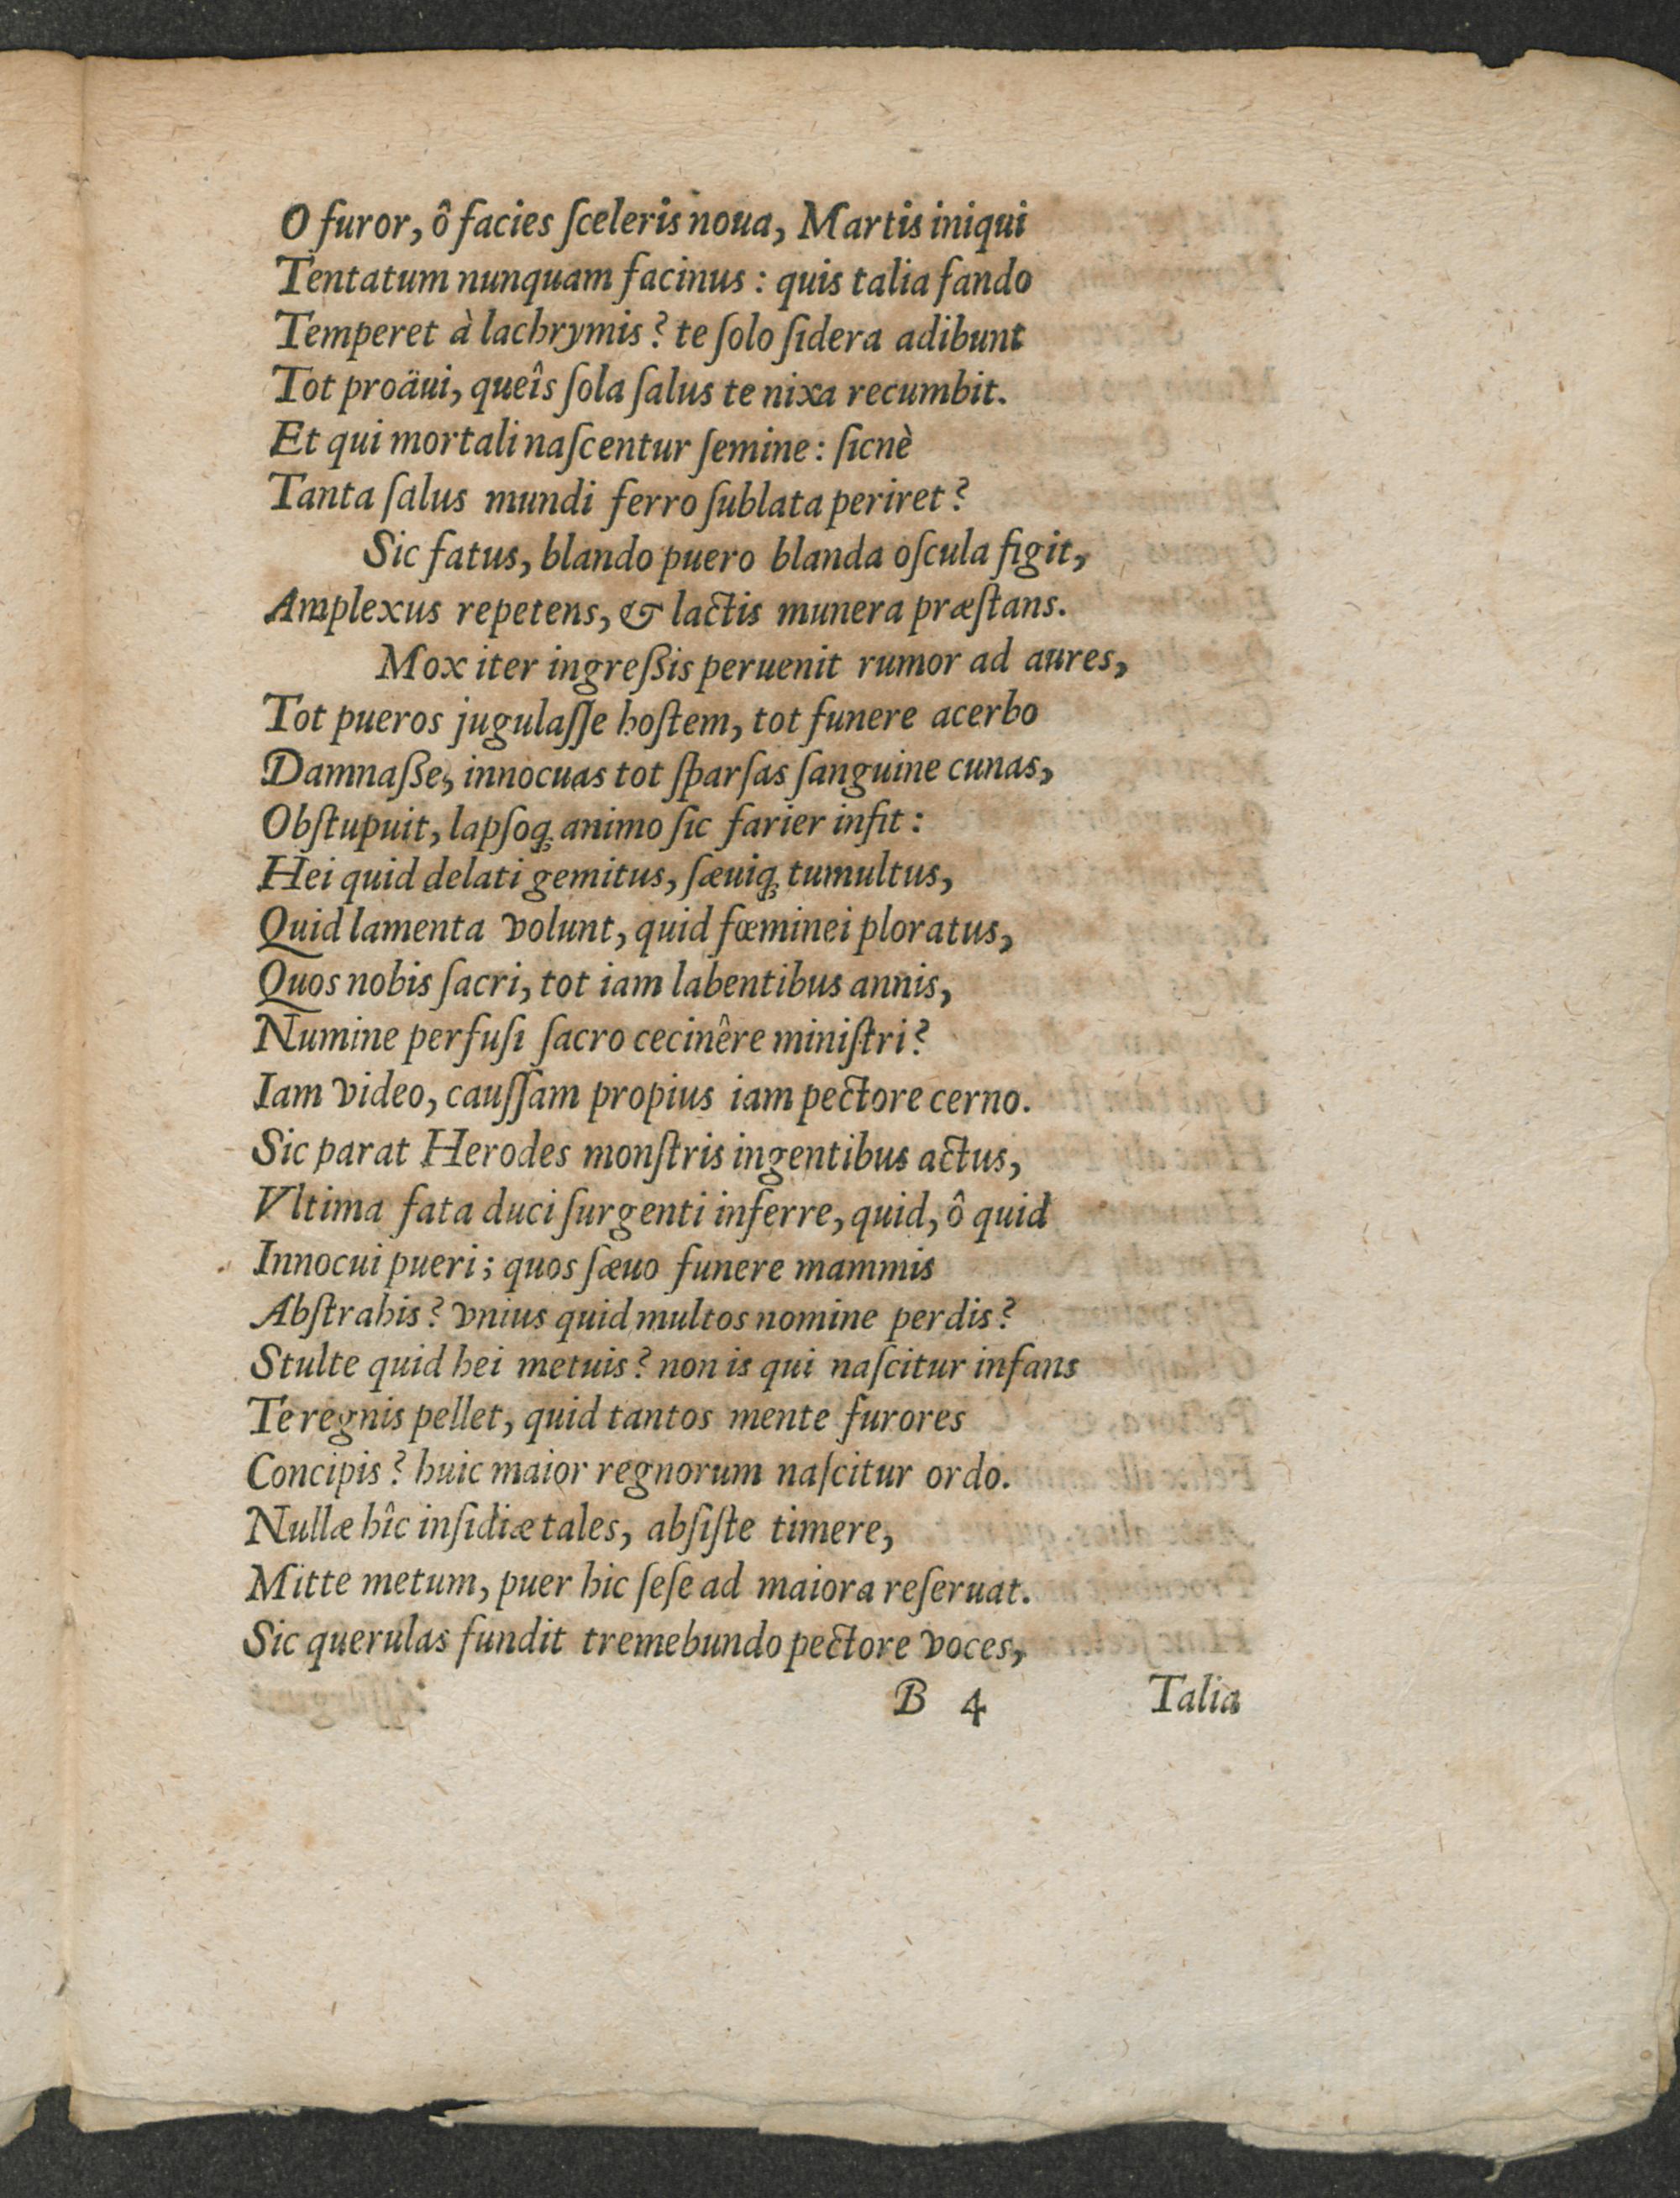 O furor, ô facies ſceleris noua, Martis iniqui
Tentatum nunquam facinus: quis talia fando
Temperet à lachrymis? te ſolo ſidera adibunt
Tot proäui, queîs ſola ſalus te nixa recumbit.
Et qui mortali naſcentur ſemine: ſicnè
Tanta ſalus mundi ferro ſublata periret?
Sic fatus, blando puero blanda oſcula figit,
Amplexus repetens, & lactis munera præſtans.
Mox iter ingreßis peruenit rumor ad aures,
Tot pueros jugulaſſe hoſtem, tot funere acerbo
Damnaße, innocuas tot ſparſas ſanguine cunas,
Obſtupuit, lapſoq́; animo ſic farier infit:
Hei quid delati gemitus, ſæuiq́; tumultus,
Quid lamenta volunt, quid fœminei ploratus,
Quos nobis ſacri, tot iam labentibus annis,
Numine perfuſi ſacro cecinêre miniſtri?
Iam video, cauſſam propius iam pectore cerno.
Sic parat Herodes monſtris ingentibus actus,
Vltima fata duci ſurgenti inferre, quid, ô quid
Innocui pueri; quos ſæuo funere mammis
Abſtrahis? vnius quid multos nomine perdis?
Stulte quid hei metuis? non is qui naſcitur infans
Te regnis pellet, quid tantos mente furores
Concipis? huic maior regnorum naſcitur ordo.
Nullæ hîc inſidiæ tales, abſiſte timere,
Mitte metum, puer hic ſeſe ad maiora reſeruat.
Sic querulas fundit tremebundo pectore voces,
B 4 Talia